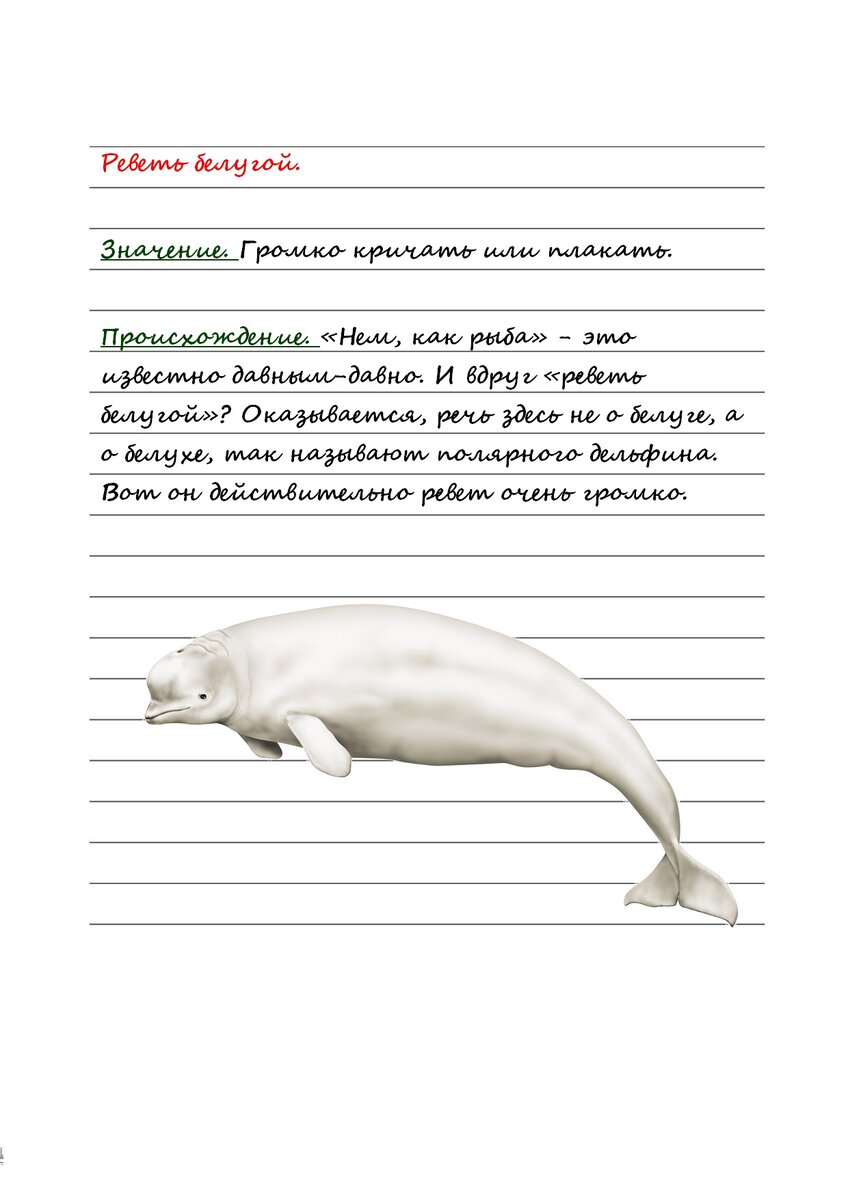 Реветь белугой.
Значение. Громко кричать или плакать.
Происхождение. «Нем, как рыба» - это
известно давным-давно. И вдруг «реветь
белугой»? Оказывается, речь здесь не о белуге, а
о белухе, так называют полярного дельфина.
Вот он действительно ревет очень громко.